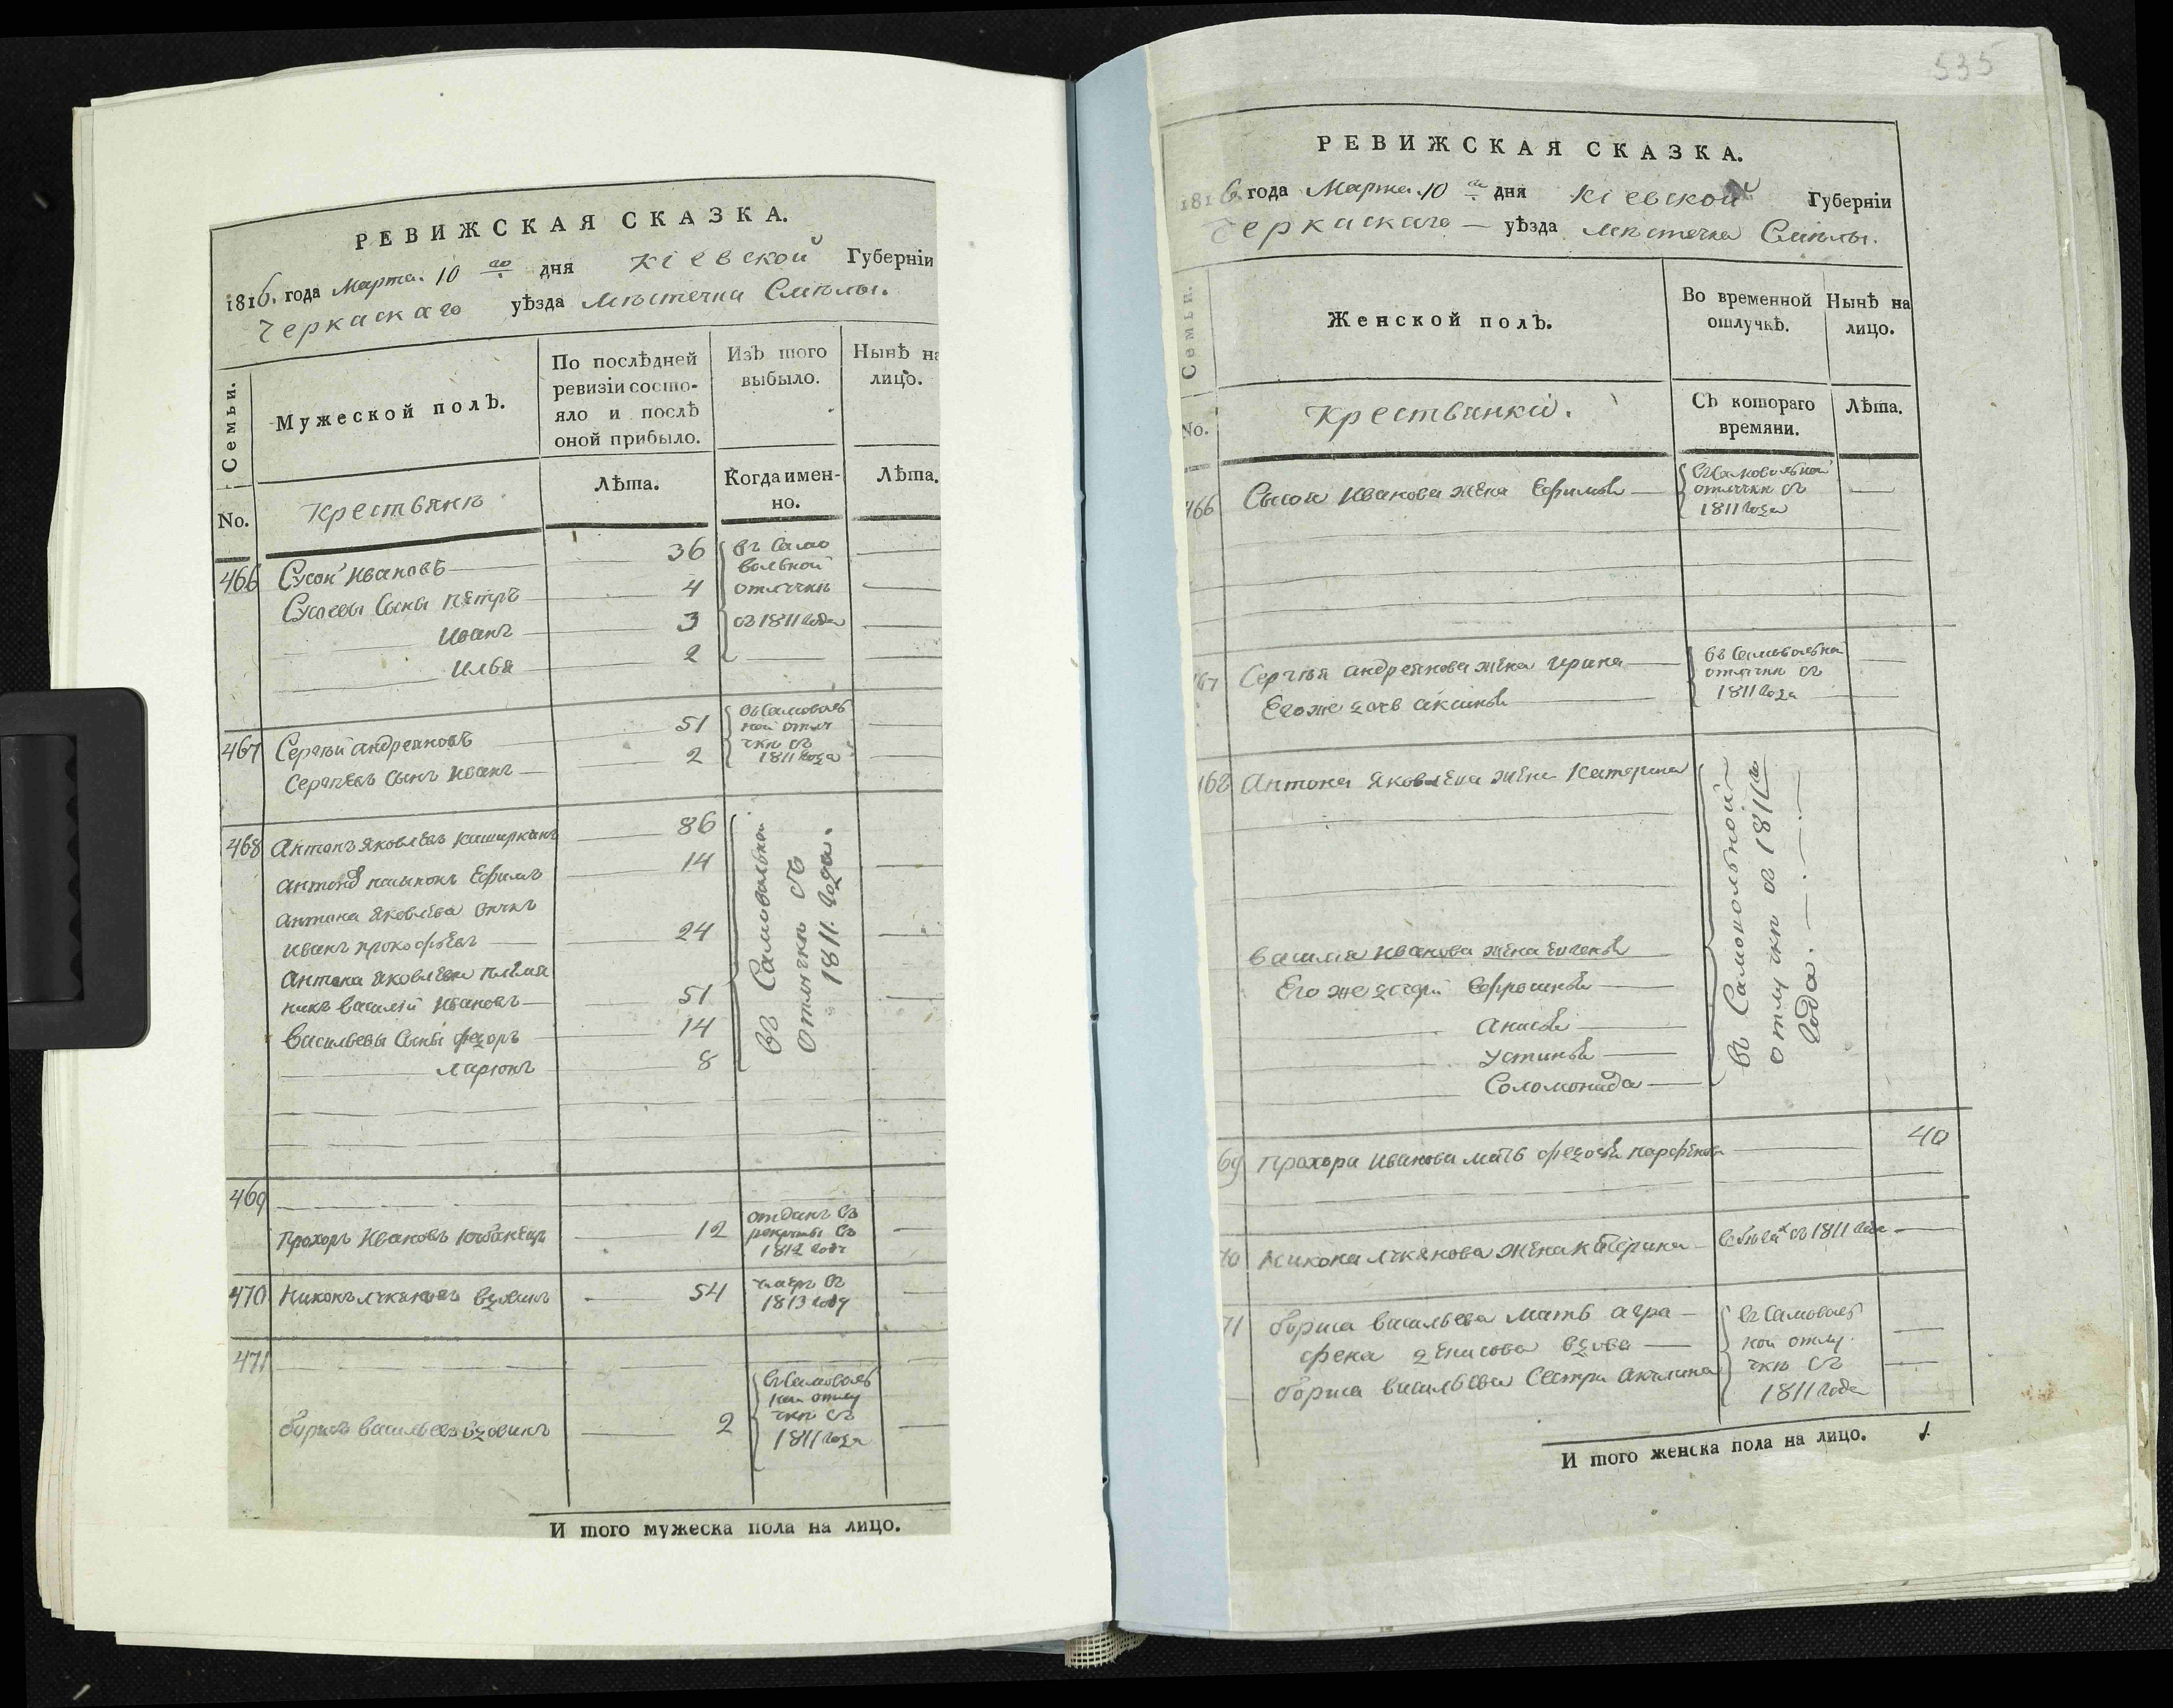 РЕВИЖСКАЯ СКАЗКА.
1816. года Марта. 10 го дня Кіевской Губерніи
Черкаскаго уѣзда Мѣстечка Смѣлы.
Семьи.
Мужеской полъ.
По послѣдней
ревизіи состо-
яло и послѣ
оной прибыло.
Изъ того
выбыло.
Нынѣ на
лицо.
No.
Крестьянѣ
Лѣта.
Когда имен-
но.
Лѣта.
466 Сусой Ивановъ 36
Сусоевы Сыны Петръ 4
Иванъ 3
Илья 2
въ Само
вольной
отлучкѣ
съ 1811 года
467 Сергѣй Андреяновъ 51
Сергѣевъ Сынъ Иванъ 2
въ Самоволь
ной отлу
чкѣ съ
1811 года
468 Антонъ Яковлевъ 86
Антона Ефимъ 14
Антона Яковлева Внукъ
Иванъ Прокофьевъ 24
Антона Яковлева племя
никъ Василій Ивановъ 51
Васильевы Сыны Федоръ 14
Ларіонъ 8
въ Самовольной
Отлучкѣ съ
1811. года.
469
Прохоръ Ивановъ 12
отданъ въ
рекруты въ
1812 году
470 Никонъ 54
умеръ въ
1813 году
471
Борисъ Васильевъ 2
въ Самоволь
ной отлу
чкѣ съ
1811 года
И того мужеска пола на лицо.
535
РЕВИЖСКАЯ СКАЗКА.
1816. года Марта. 10 го дня Кіевской Губерніи
Черкаскаго уѣзда Мѣстечка Смѣлы.
Семьи.
Женской полъ.
Во временной
отлучкѣ.
Нынѣ на
лицо.
No.
Крестьянки.
Съ котораго
времяни.
Лѣта.
466 Сысоя Иванова жена Ефимья
въ Самовольной
отлучкѣ съ
1811 года
67 Сергѣя Андреянова жена Ирина
Его же дочь Аксинья
въ Самовольной
отлучкѣ съ
1811 года
468 Антона Яковлева жена Катерина
Василія Иванова жена
Его же дочери Ефросинья
Анисья
Устинья
Соломонида
въ Самовольной
отлучкѣ съ 1811 го
Года.
69 Прохора Иванова мать Федосья Парфенова 40
70 Никона жена Катерина съ 1811 года
71 Бориса Васильева Мать Агра-
фена Денисова
Бориса Васильева Сестра Акилина
въ Самоволь
ной отлу
чкѣ съ
1811 года
И того женска пола на лицо. 1.